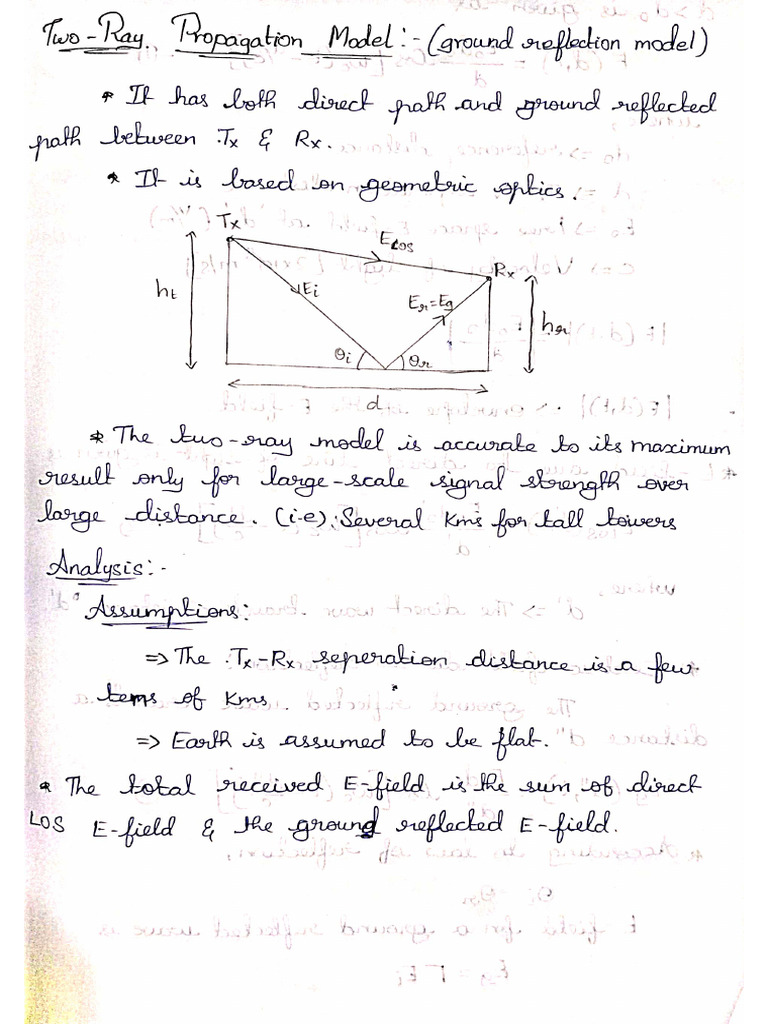 Two-Ray Propagation Model :- (ground reflection model)
* It has both direct path and ground reflected
path between Tx & Rx.
* It is based on geometric optics.
Tx
ELOS
Rx
ht
Ei
Er=Eg
hr
θi
θr
d
* The two-ray model is accurate to its maximum
result only for large-scale signal strength over
large distance. (i.e). Several Kms for tall towers
Analysis:-
Assumptions:
=> The Tx-Rx seperation distance is a few
tems of Kms.
=> Earth is assumed to be flat.
* The total received E-field is the sum of direct
LOS E-field & the ground reflected E-field.